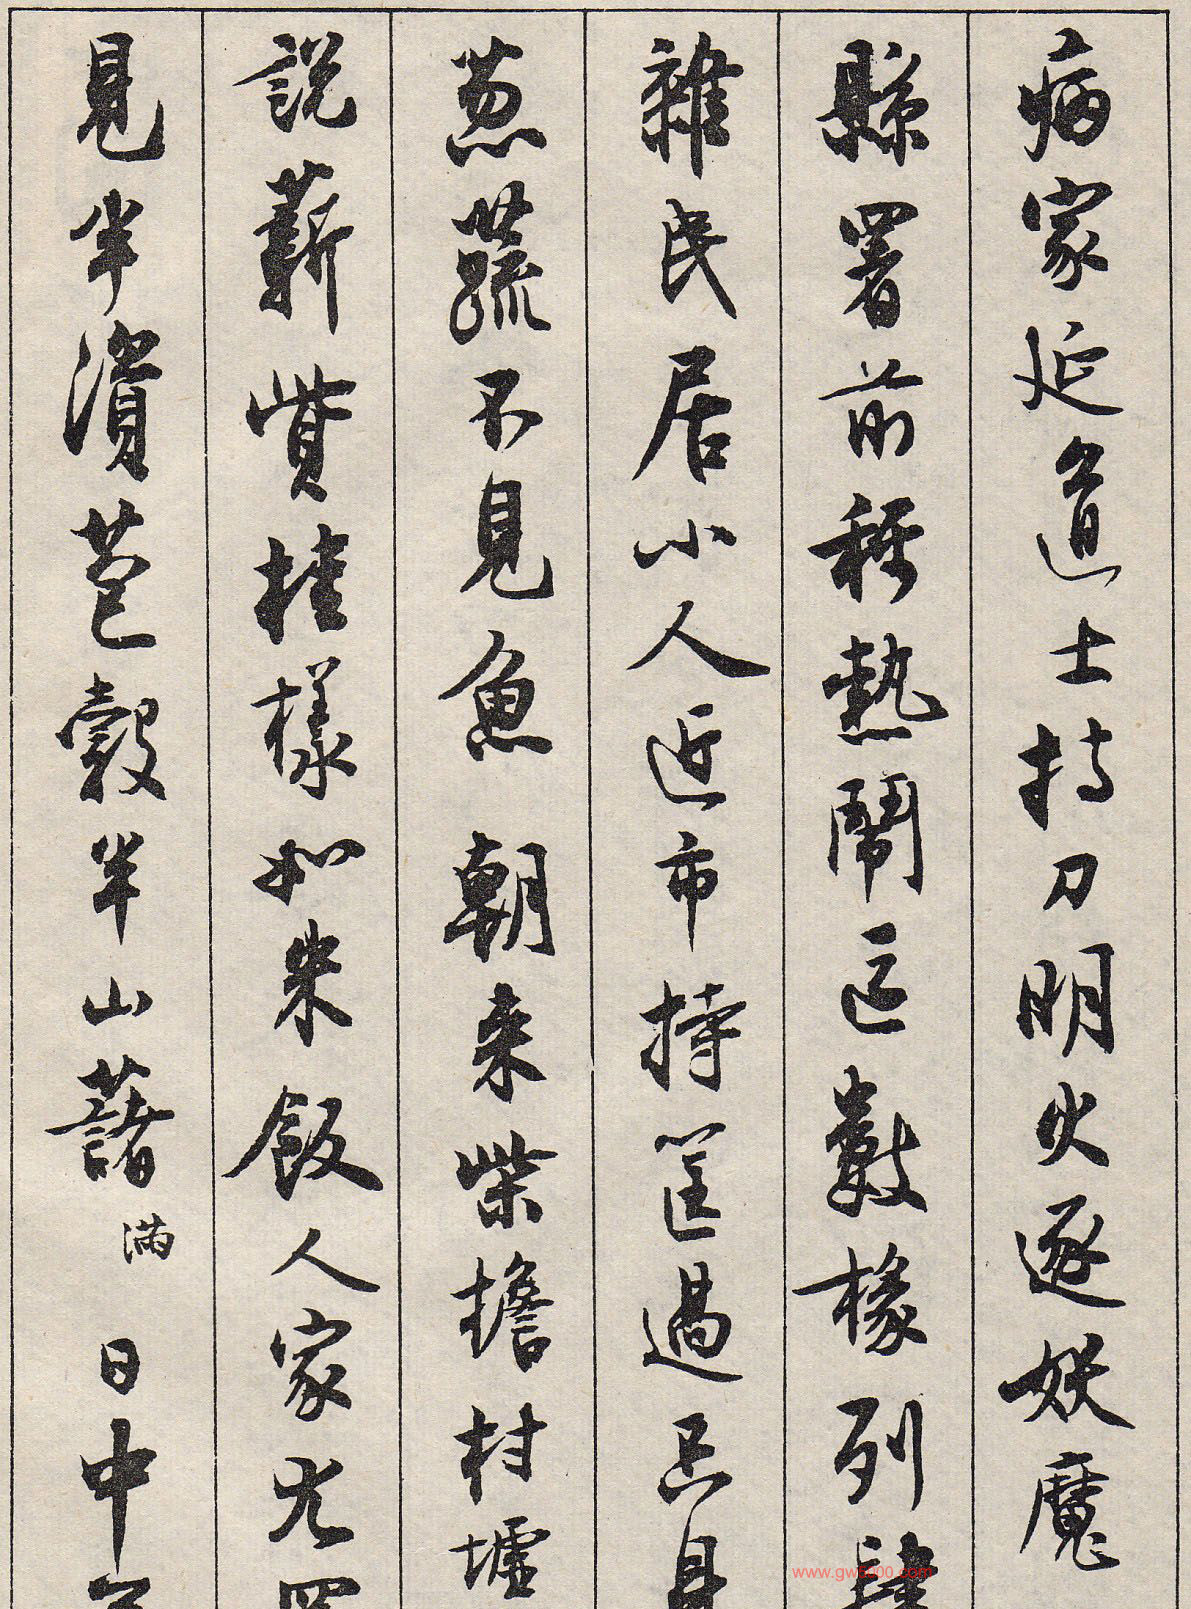 病家延道士持刀明火逐妖魔
縣署前稱熱鬧區數椽列肆
雜民居小人近市持筐過只見
葱蔬不見魚朝来柴擔村墟
説薪貲桂樣如米飯人家尤罕
見半濱苞穀半山藷满日中
www.gw5000.com